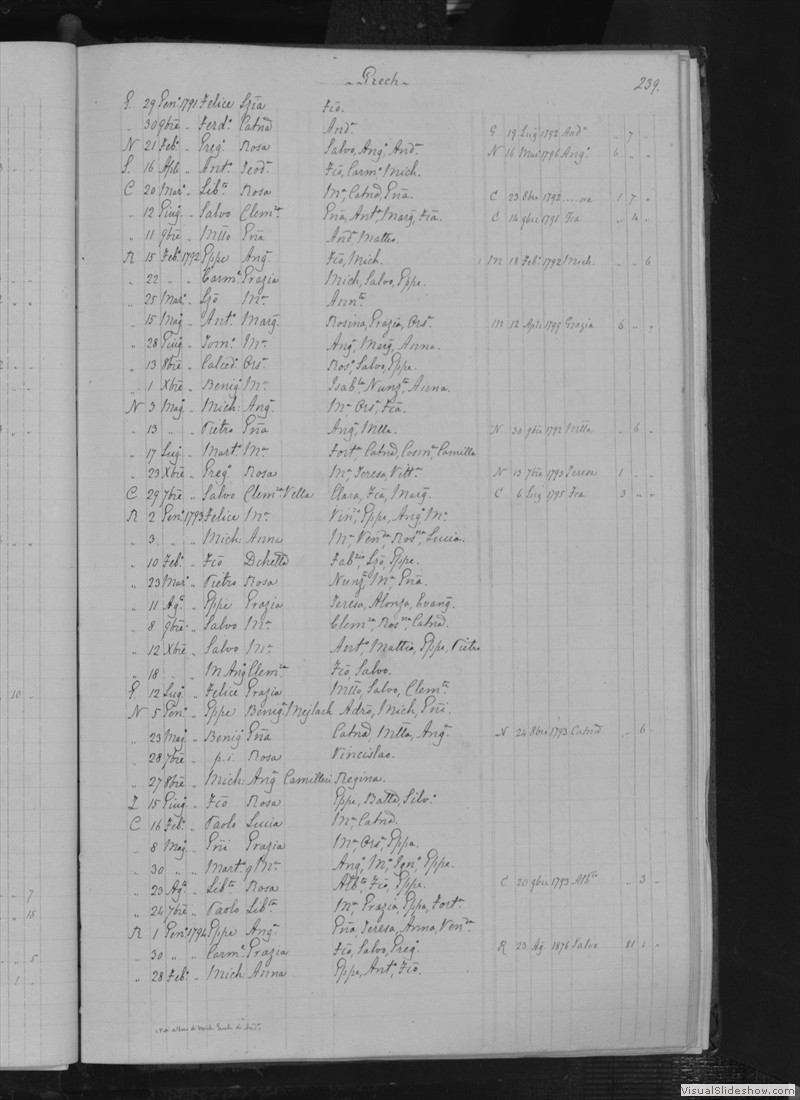 Grech
239.
G. 29 Gen.º 1791 Felice Gjia Fio.
„ 30 9bre „ Ferd.º Catnd And. G 19 Lug 1792 And.º „ 7 „
N 21 Feb.º „ Greg.º Rosa Salvo, Ang.º And. N 16 Mar 1796 Ang.º 6 „ „
S. 16 Aple „ Ant.º Teod.ª Fio, Carm.º Mich.
C 20 Mar.º „ Lib.to Rosa M.ª, Catnd, Gna. C 23 8bre 1792 1 7 „
„ 12 Giug „ Salvo Clem.za Gna, Ant.ª Marg, Fca. C 14 9bre 1791 Fca „ 4 „
„ 11 9bre „ Mtto Gna And. Matteo.
R 15 Feb.º 1792 Gppe Ang.ª Fio, Mich. 1 M 18 Feb.º 1792 Mich. „ „ 6
„ 22 „ „ Carm.º Grazia Mich, Salvo, Gppe.
„ 25 Mar.º „ Gjo M.ª Ann.ta
„ 15 Mag „ Ant.º Marg.ª Rosina, Grazia, Ors.ª M 12 Aple 1799 Grazia 6 „ „
„ 28 Giug „ Dom.º M.ª Ang, Marg, Anna.
„ 13 8bre „ Calced.º Ors.ª Ros.ª Salvo, Gppe.
„ 1 Xbre „ Benig.º M.ª Isab.la Nunz.ta Anna.
N 3 Mag „ Mich: Ang.ª M.ª Ors.ª Fca.
„ 13 „ „ Pietro Gna Ang, Mtta. N 30 9bre 1792 Mtta „ 6 „
„ 17 Lug. „ Mart.º M.ª Fort.ª Catnd, Cosm.ª Camilla
„ 23 Xbre „ Greg.º Rosa M.ª Teresa, Vitt.ª N 13 7bre 1793 Teresa 1 „ „
C 29 7bre „ Salvo Clem.za Vella Clara, Fca, Marg. C 6 Lug 1795 Fca 3 „ „
R 2 Gen.º 1793 Felice M.ª Vin.º Gppe, Ang.º M.ª
„ 3 „ „ Mich: Anna M.ª Ven.da Ros.na Lucia.
„ 10 Feb.º „ Fio Dchetta Fab.zio Gjo, Gppe.
„ 23 Mar.º „ Pietro Rosa Nunz.º M.ª Gna.
„ 11 Ag.º „ Gppe Grazia Teresa, Alonza, Evang.
„ 8 9bre „ Salvo M.ª Clem.za Ros.na Catnd.
„ 12 Xbre „ Salvo M.ª Ant.º Matteo, Gppe, Pietro
„ 18 „ „ M Ang Clem.za Fio, Salvo.
G. 12 Lug. „ Felice Grazia Mtto, Salvo, Clem.te
N 5 Gen.º „ Gppe Benig.ª Mejlach Adrō, Mich, Gni.
„ 23 Mag „ Benig.º Gna Catnd Mtta, Ang.ª N 24 8bre 1793 Catnd „ 6 „
„ 28 7bre „ p.i. Rosa Vincislao.
„ 27 8bre „ Mich: Ang Camilleri Regina.
Z 15 Giug „ Fio Rosa Gppe, Batta, Silv.º
C 16 Feb.º „ Paolo Lucia M.ª Catnd.
„ 8 Mag „ Gni Grazia M.ª Ors.ª Gppa.
„ 30 „ „ Mart.º q M.ª Ang.º M.ª Ign.º Gppa.
„ 23 Ag.º „ Lib.to Rosa Alb.to Fio, Gppe. C 20 9bre 1793 Alb.to „ 3 „
„ 24 7bre „ Paolo Lib.ta M.ª Grazia, Gppa, Fort.ª
R 1 Gen.º 1794 Gppe Ang.ª Gna, Teresa, Anna, Ven.da
„ 30 „ „ Carm.º Grazia Fio, Salvo, Greg.º R 23 Ag 1876 Salvo 81 6 „
„ 28 Feb.º „ Mich: Anna Gppe, Ant.º Fio.
VisualSlideshow.com